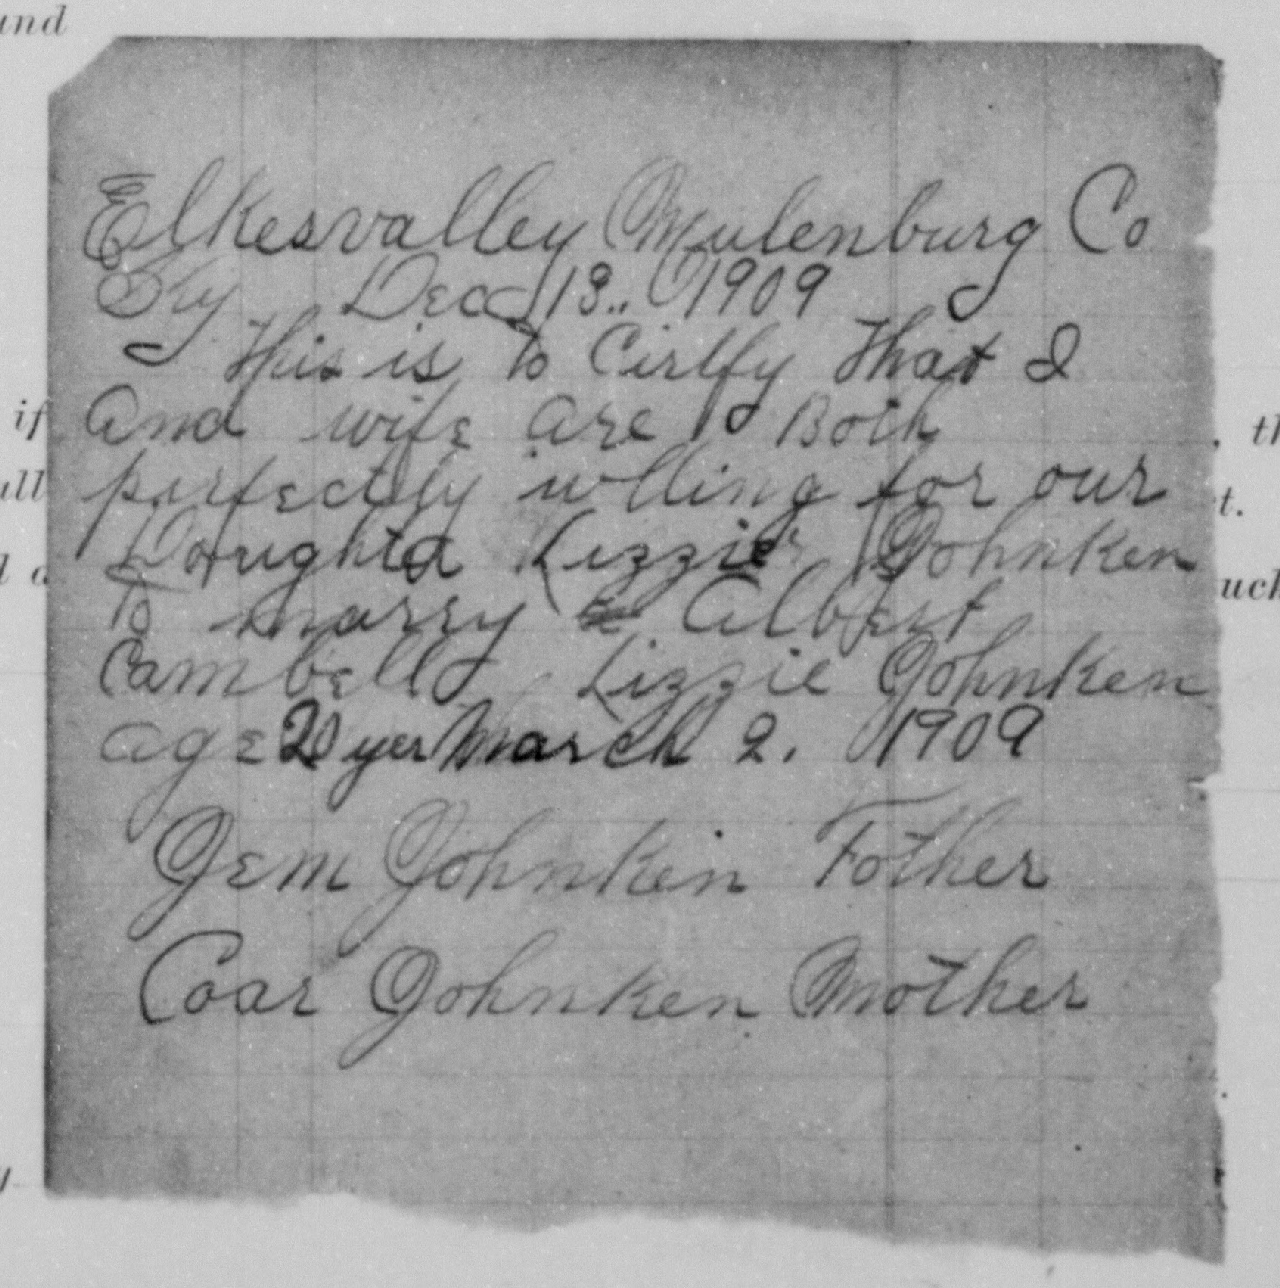 und
Elkesvalley Mulenburg Co
Ky Dec 13.. 1909
this is to Cirtfy that I
if and wife are Both , th
ull perfectly willing for our t.
d a Doughta Lizzie Johnken uch
to marry Albert
Cambell Lizzie Johnken
age 20 yer March 2. 1909
Jem Johnken Father
Coar Johnken Mother